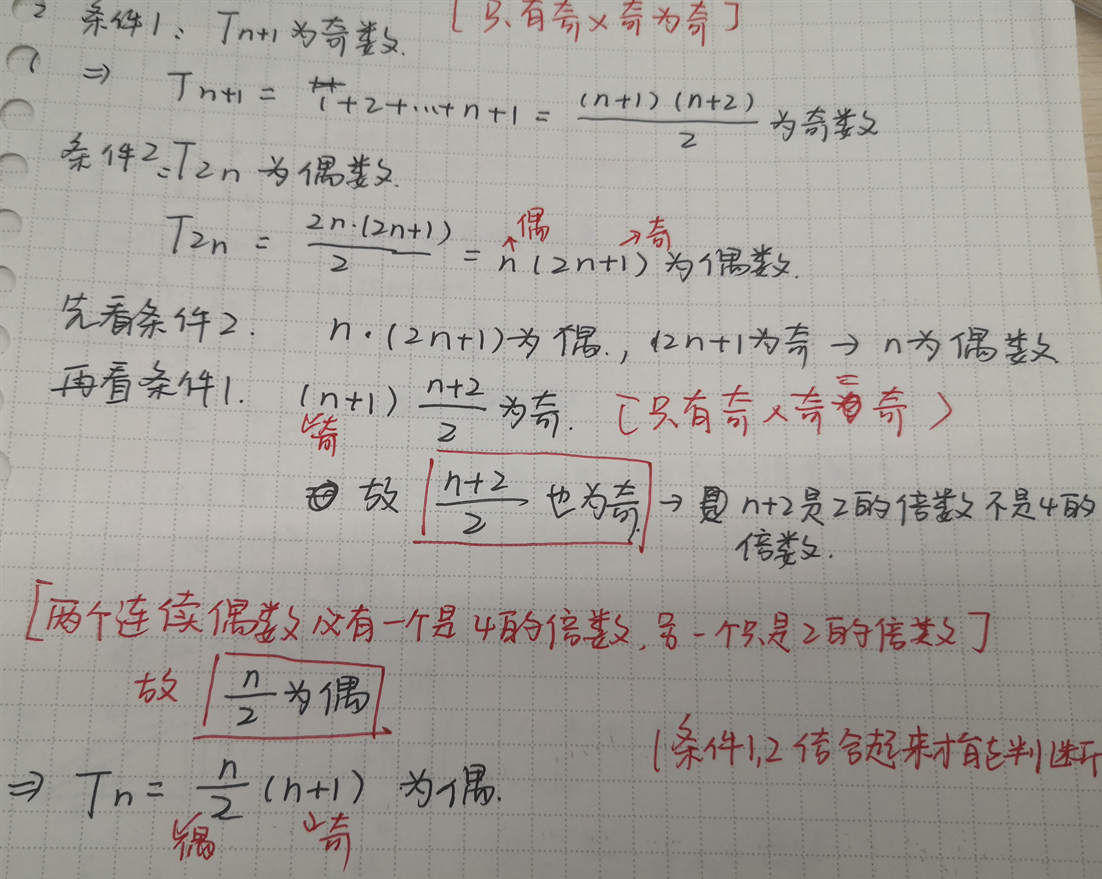 条件1: Tn+1 为奇数. [只有奇×奇为奇]
⇒ Tn+1 = 1+2+...+n+1 = (n+1)(n+2)/2 为奇数
条件2: T2n 为偶数.
T2n = 2n·(2n+1)/2 = n(2n+1) 为偶数.
偶 奇
先看条件2. n·(2n+1)为偶., 2n+1为奇 → n为偶数
再看条件1. (n+1) n+2/2 为奇. [只有奇×奇=奇)
奇
故 n+2/2 也为奇. → n+2是2的倍数不是4的
倍数.
[两个连续偶数必有一个是4的倍数,另一个只是2的倍数]
故 n/2 为偶
(条件1,2结合起来才能判断
⇒ Tn = n/2 (n+1) 为偶.
偶 奇